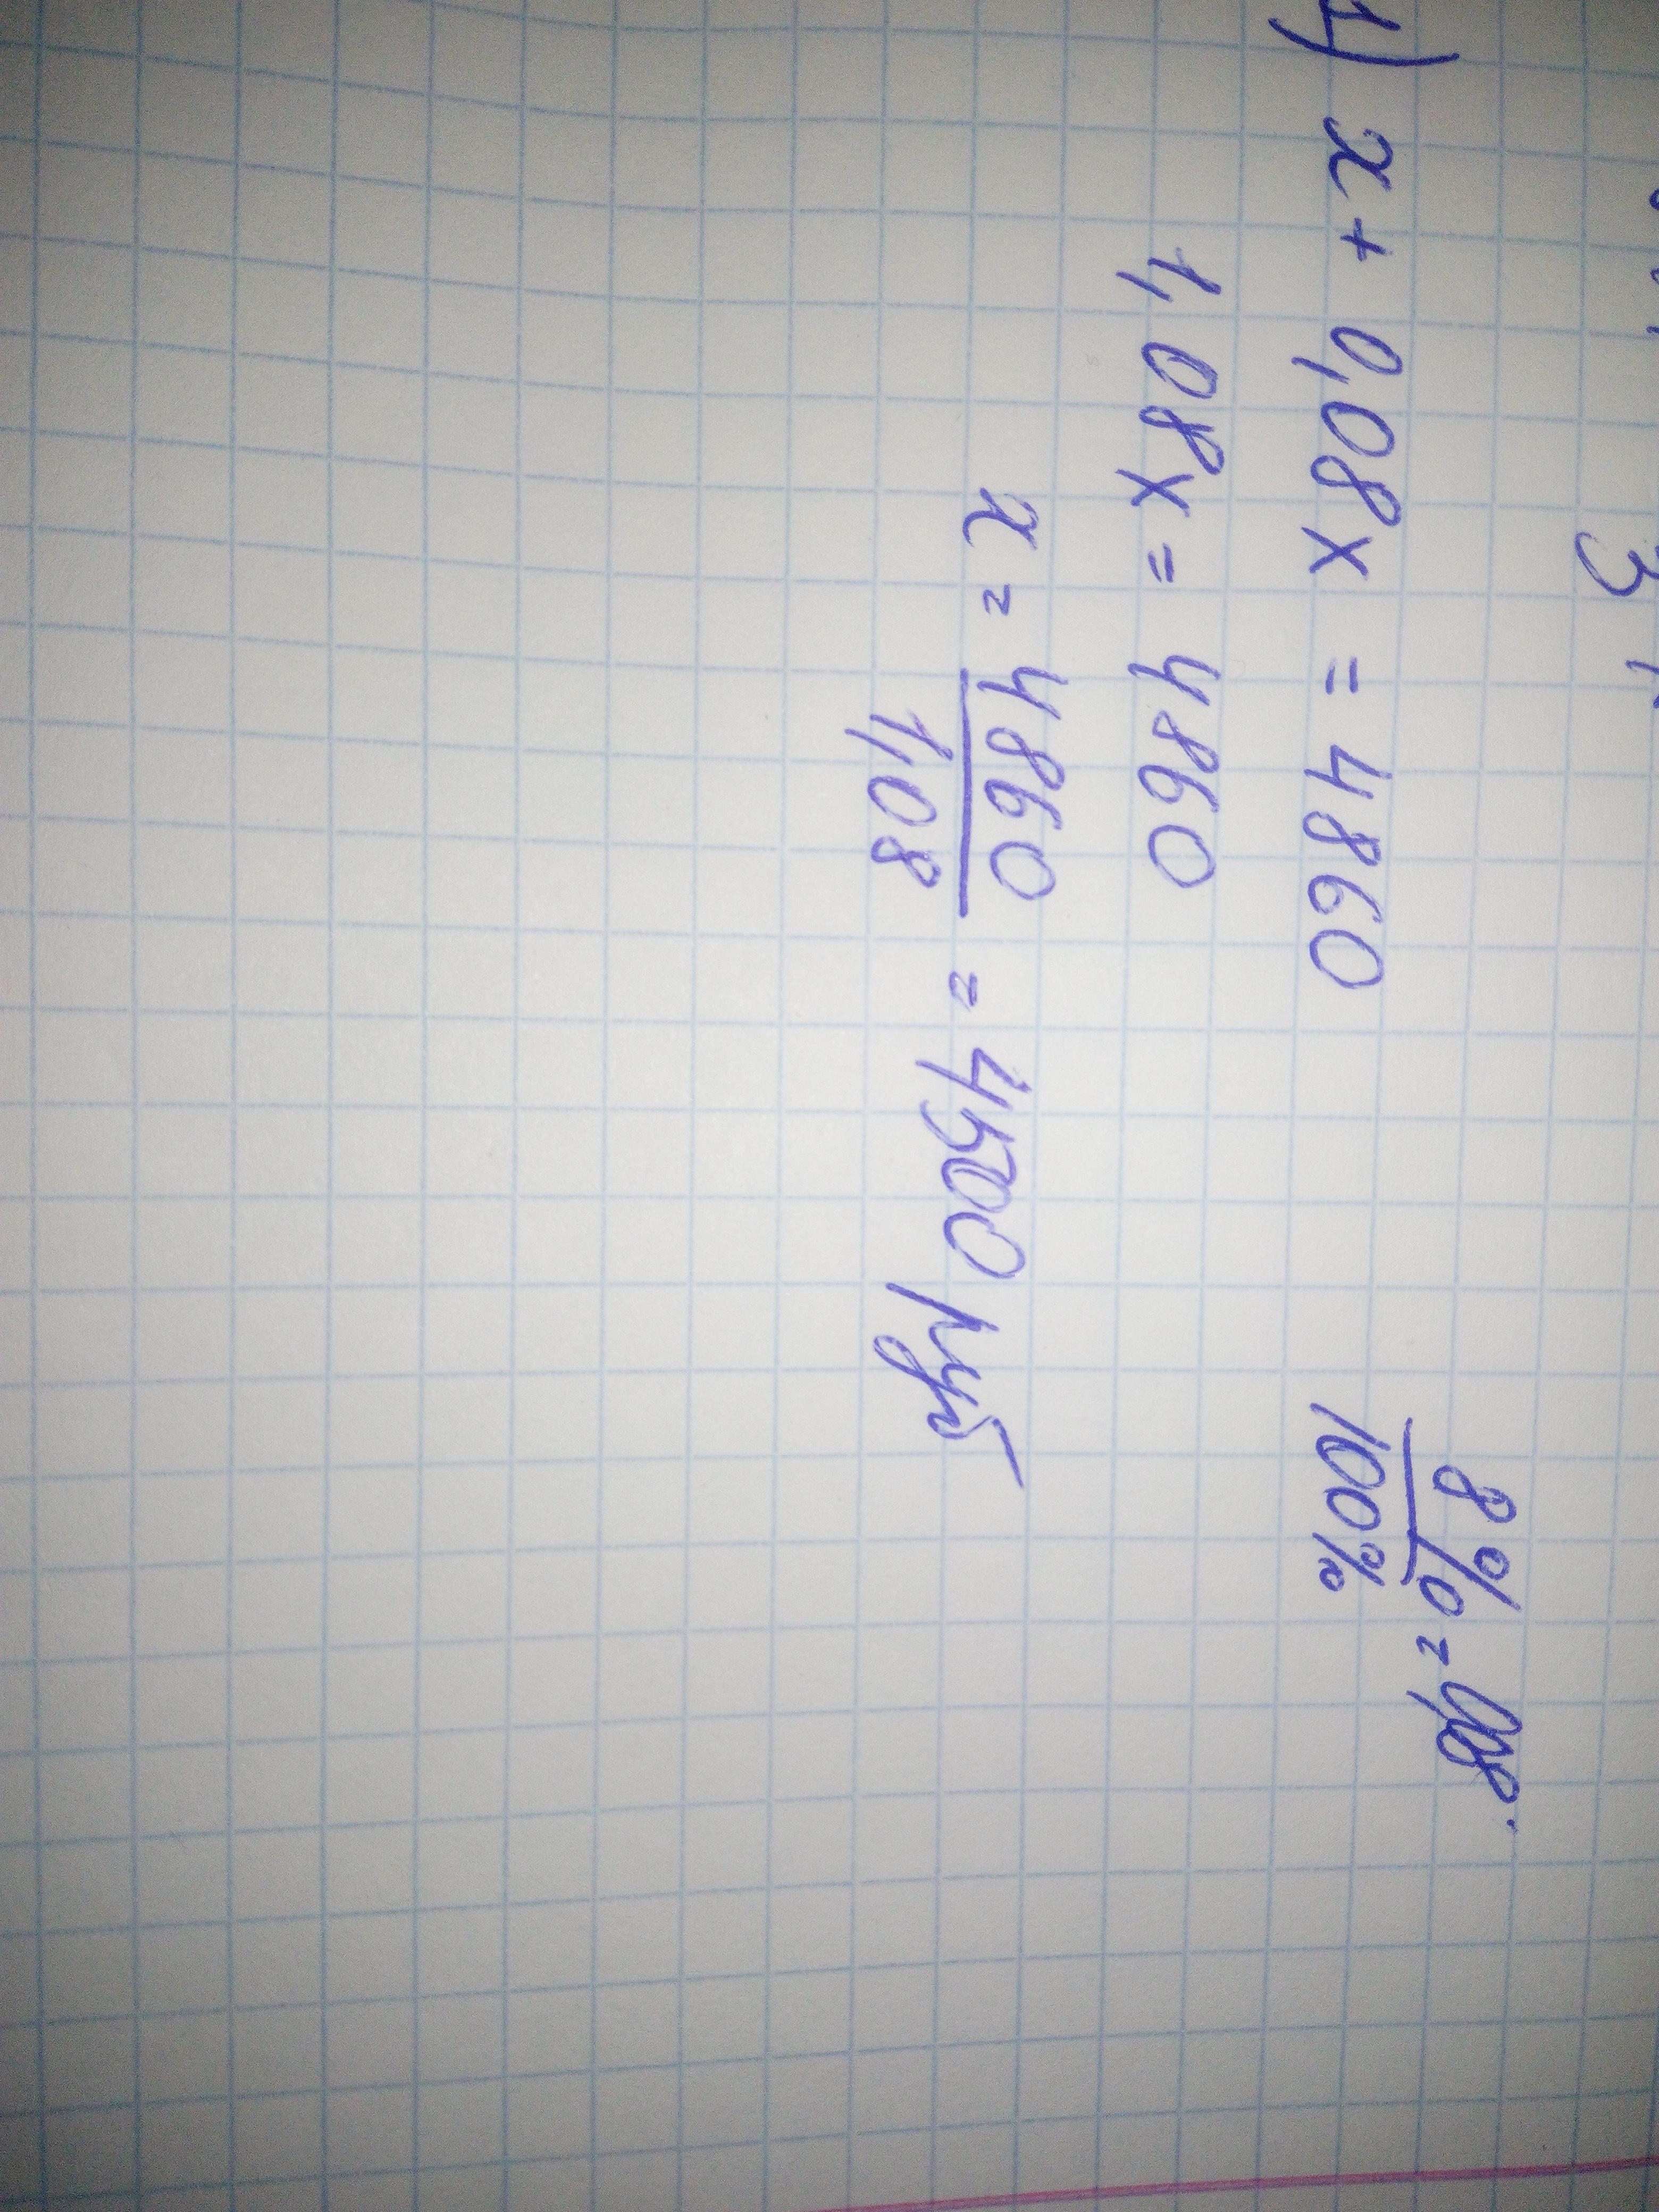 8% = 0,08
100%
1) x + 0,08x = 4860
1,08x = 4860
x = 4860 = 4500 руб
1,08